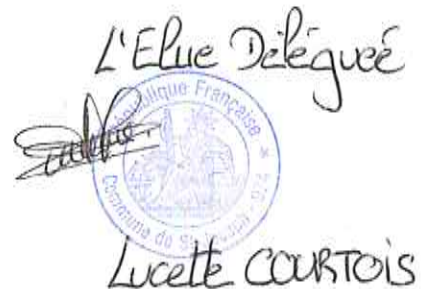 L'Elue Déléguée
République Française
Commune de St Joseph - 974
Lucette COURTOIS